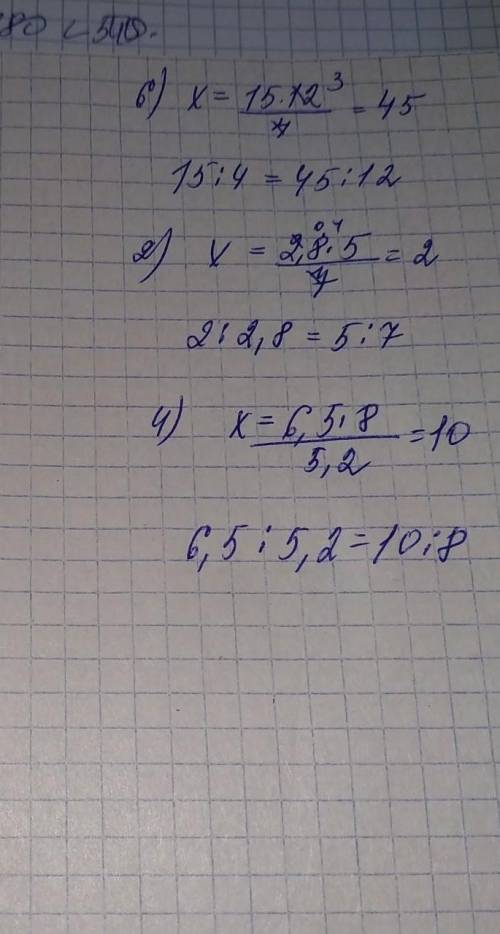 80 < 540.
б) x = 15·12³/4 = 45
15:4 = 45:12
2) x = 2,8·5/7 = 2
0,4
2:2,8 = 5:7
4) x = 6,5·8/5,2 = 10
6,5:5,2 = 10:8